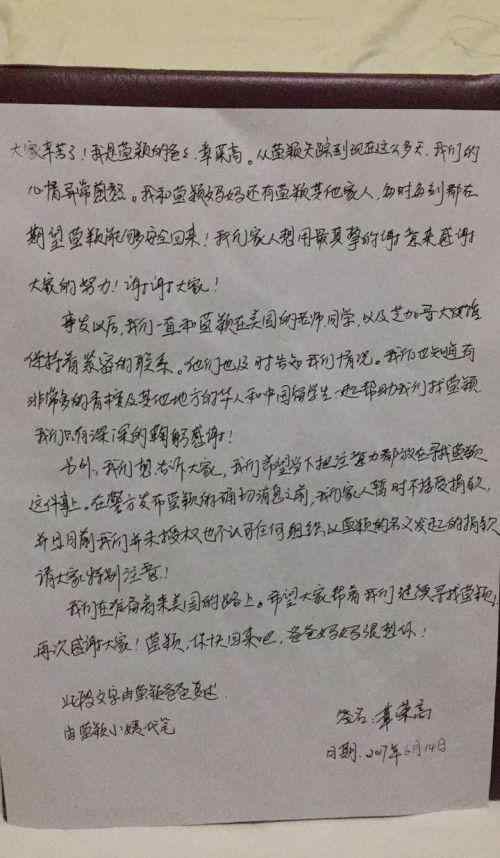 大家辛苦了！我是莹颖的爸爸，章荣高。从莹颖失踪到现在这么多天，我们的
心情异常煎熬。我和莹颖妈妈还有莹颖其他家人，每时每刻都在
期望莹颖能够安全回来！我们家人想用最真挚的谢意来感谢
大家的努力！谢谢大家！
事发以后，我们一直和莹颖在美国的老师同学，以及芝加哥大使馆
保持着紧密的联系。他们也及时告知我们情况。我们也知道有
非常多的香槟及其他地方的华人和中国留学生一起帮助我们找莹颖
我们只有深深的鞠躬感谢！
另外，我们想告诉大家，我们希望当下把注意力都放在寻找莹颖
这件事上。在警方发布莹颖的确切消息之前，我们家人暂时不接受捐款，
并且目前我们并未授权也不认可任何组织以莹颖的名义发起的捐款
请大家特别注意！
我们在准备着来美国的路上。希望大家帮着我们继续寻找莹颖！
再次感谢大家！莹颖，你快回来吧，爸爸妈妈很想你！
此段文字由莹颖爸爸口述
由莹颖小姨代笔
签名：章荣高
日期：2017年6月14日